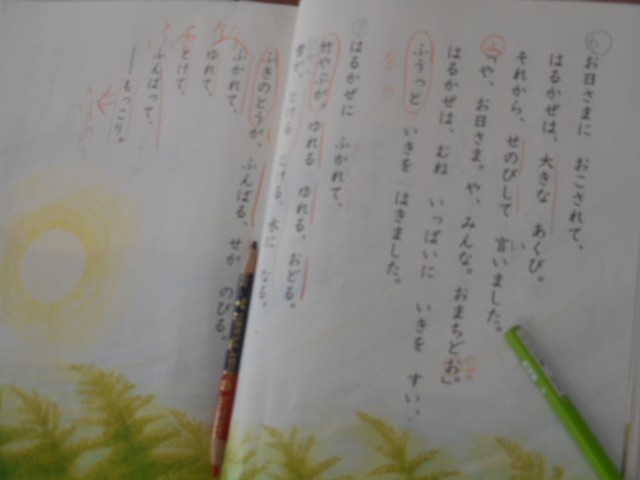 ⑥
お日さまに おこされて、
はるかぜは、大きな あくび。
それから、せのびして 言いました。
い
「や、お日さま。や、みんな。おまちどお。」
はるかぜは、むね いっぱいに いきを すい、
ふうっと いきを はきました。
⑦
はるかぜに ふかれて、
竹やぶが、ゆれる ゆれる、おどる。
雪が、とける とける、水に なる。
ふきのとうが、ふんばる、せが のびる。
ふかれて、
ゆれて、
とけて、
ふんばって、
――もっこり。